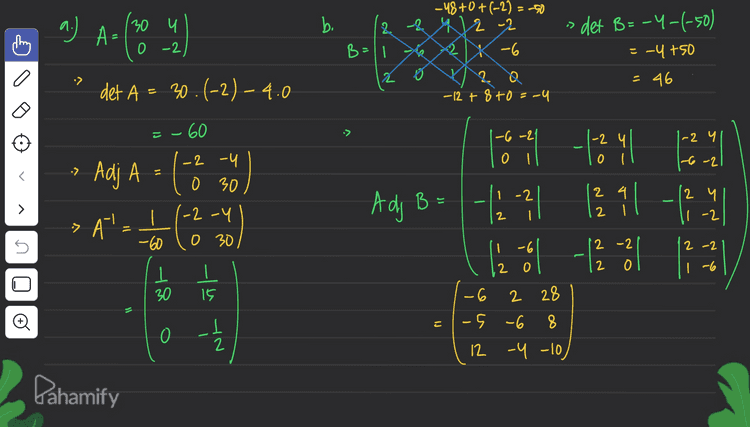 a.) A = (30 4
0 -2)
-> det A = 30 . (-2) - 4.0
= - 60
-> Adj A = (-2 -4
0 30)
-> A⁻¹ = 1/-60 (-2 -4
0 30)
= (1/30 1/15
0 -1/2)
b. -48 + 0 + (-2) = -50
B = (2 -2 4) 2 -2
(1 -6 -2) 1 -6
(2 0 1) 2 0
-12 + 8 + 0 = -4
-> det B = -4 - (-50)
= -4 + 50
= 46
-> Adj B = (|-6 -2; 0 1| -|-2 4; 0 1| |-2 4; -6 -2|
-|1 -2; 2 1| |2 4; 2 1| -|2 4; 1 -2|
|1 -6; 2 0| -|2 -2; 2 0| |2 -2; 1 -6|)
= (-6 2 28
-5 -6 8
12 -4 -10)
Pahamify